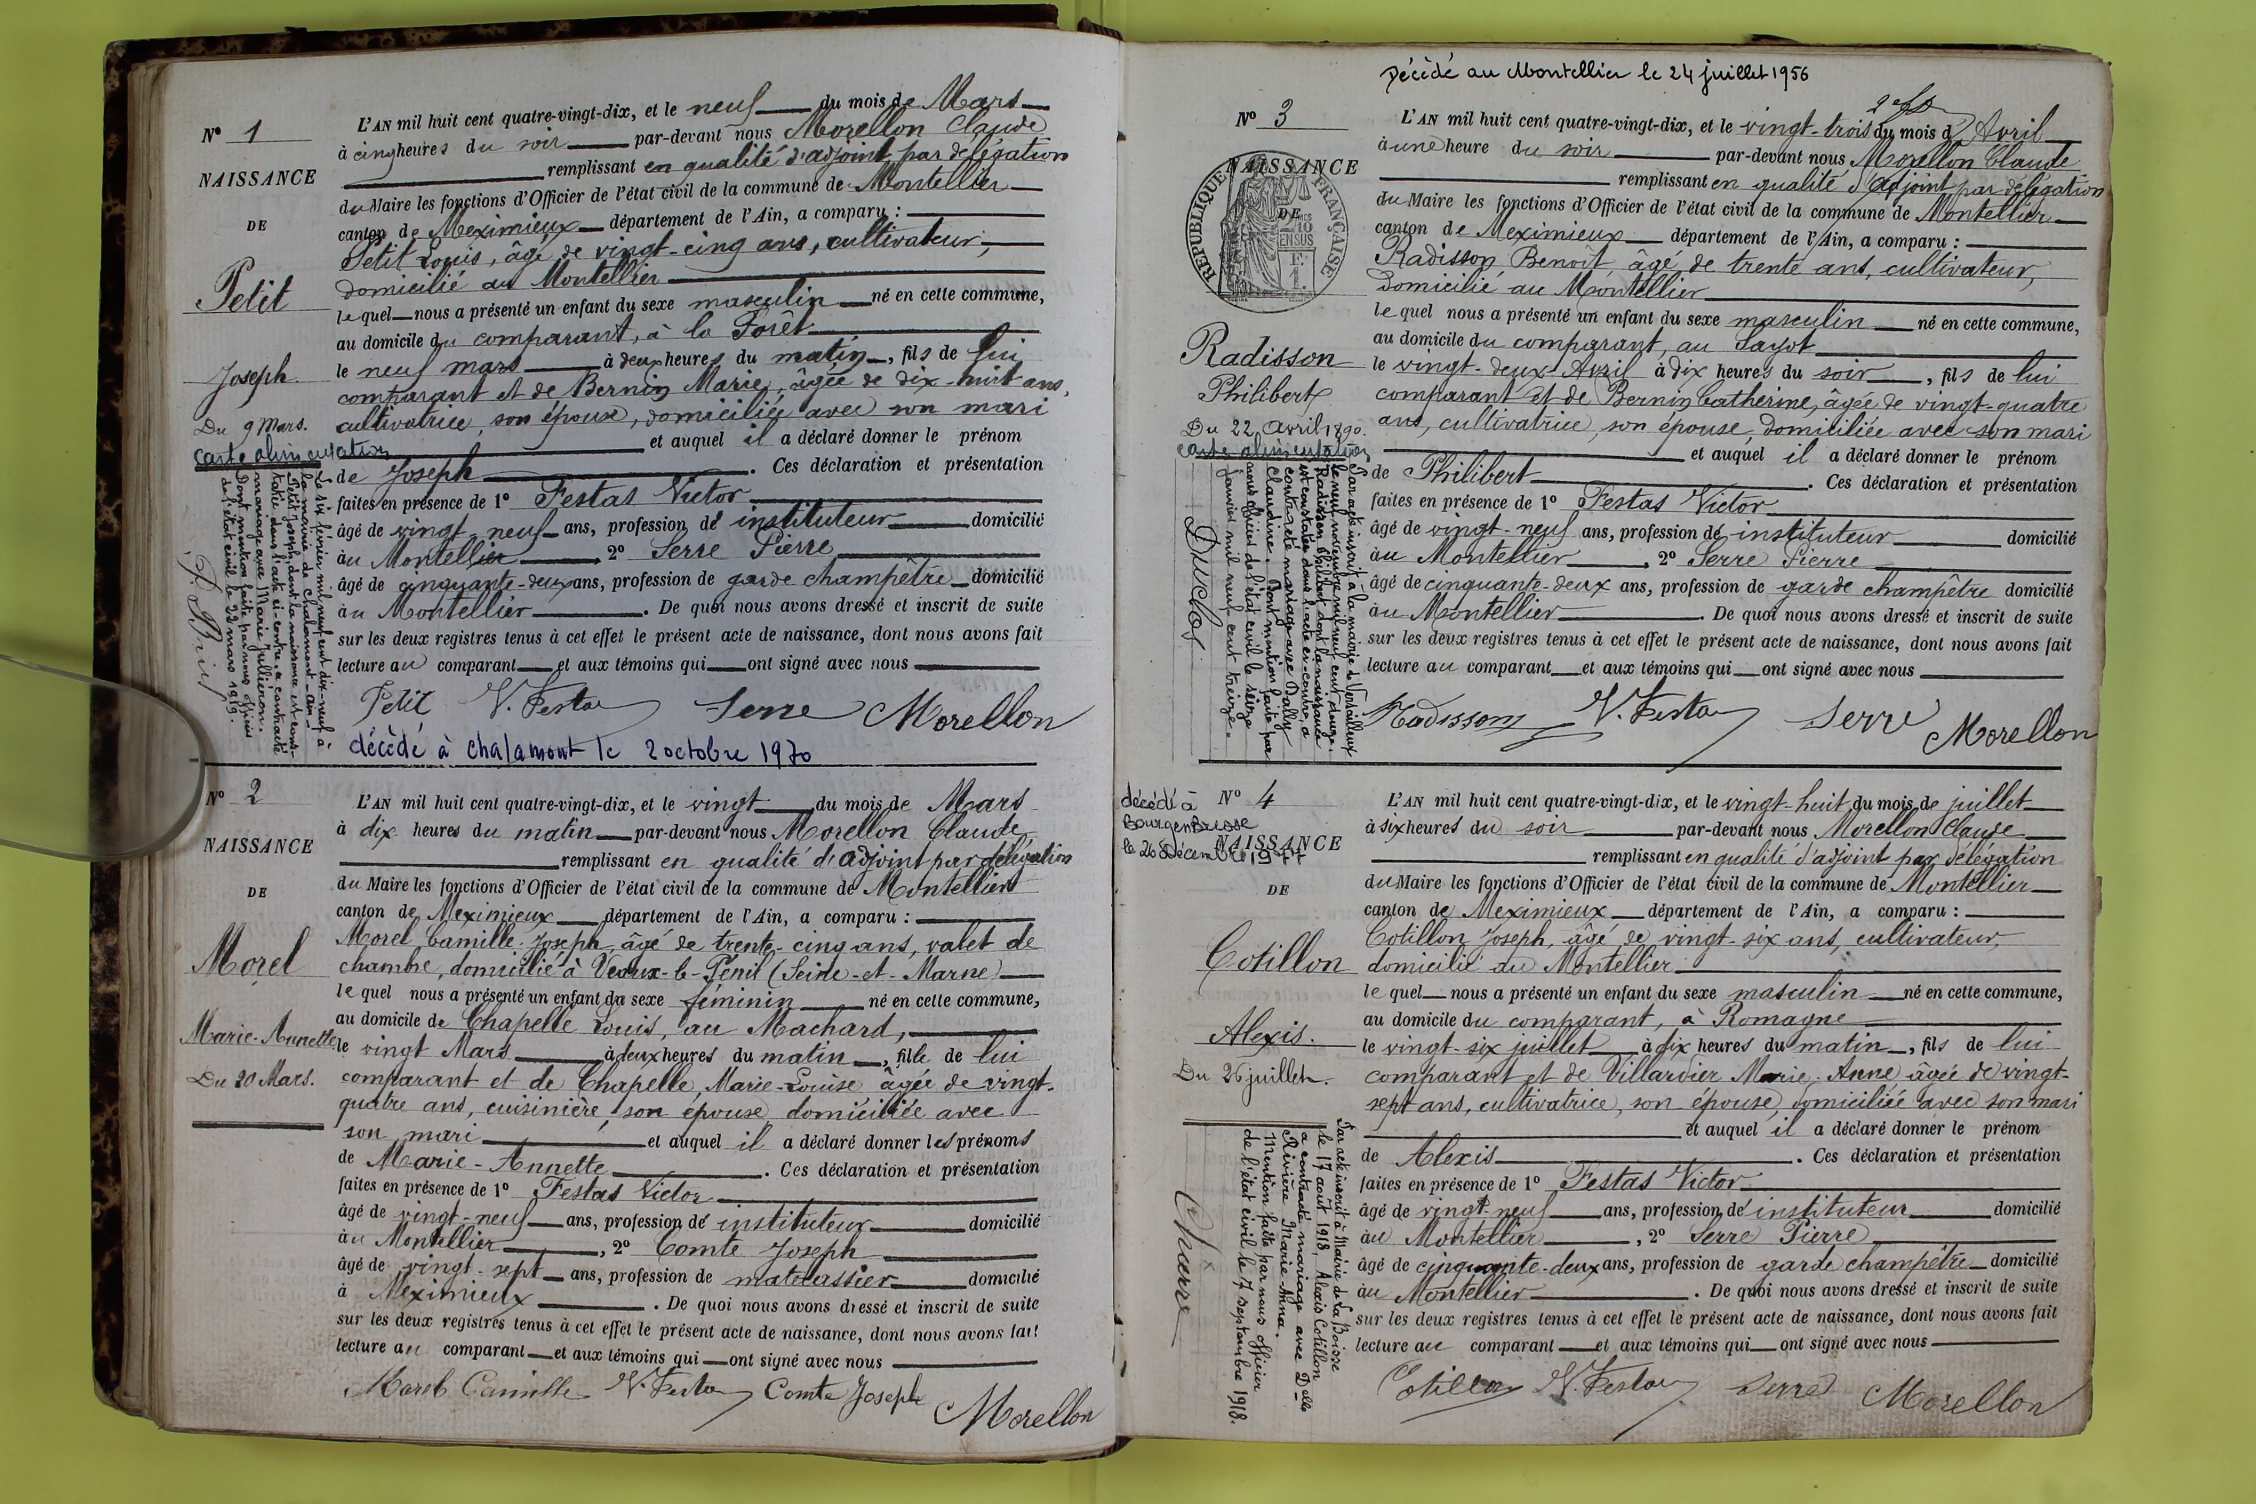 N° 1
NAISSANCE
DE
Petit
Joseph
Du 9 Mars.
carte alimentation
Le six février mil neuf cent dix-neuf à
la mairie de Chalamont -ain-
Petit Joseph, dont la naissance est cons-
tatée dans l'acte ci-contre, a contracté
mariage avec Marie Jullieron.
Dont mention faite par nous officier
de l'état civil le 22 mars 1919.
L'AN mil huit cent quatre-vingt-dix, et le neuf du mois de Mars
à cinq heures du soir par-devant nous Morellon Claude
remplissant en qualité d'adjoint par délégation
du Maire les fonctions d'Officier de l'état civil de la commune de Montellier
canton de Meximieux département de l'Ain, a comparu :
Petit Louis, âgé de vingt-cinq ans, cultivateur,
domicilié au Montellier
lequel nous a présenté un enfant du sexe masculin né en cette commune,
au domicile du comparant, à la Forêt
le neuf mars à deux heures du matin, fils de lui
comparant et de Bernin Marie, âgée de dix-huit ans,
cultivatrice, son épouse, domiciliée avec son mari
et auquel il a déclaré donner le prénom
de Joseph. Ces déclaration et présentation
faites en présence de 1° Festas Victor
âgé de vingt-neuf ans, profession de instituteur domicilié
au Montellier, 2° Serre Pierre
âgé de cinquante-deux ans, profession de garde champêtre domicilié
au Montellier. De quoi nous avons dressé et inscrit de suite
sur les deux registres tenus à cet effet le présent acte de naissance, dont nous avons fait
lecture au comparant et aux témoins qui ont signé avec nous
Petit V. Festas Serre Morellon
décédé à Chalamont le 2 octobre 1970
N° 2
NAISSANCE
DE
Morel
Marie-Annette
Du 20 Mars.
L'AN mil huit cent quatre-vingt-dix, et le vingt du mois de Mars
à dix heures du matin par-devant nous Morellon Claude
remplissant en qualité d'adjoint par délégation
du Maire les fonctions d'Officier de l'état civil de la commune de Montellier
canton de Meximieux département de l'Ain, a comparu :
Morel Camille-Joseph âgé de trente-cinq ans, valet de
chambre, domicilié à Veaux-le-Pénil (Seine-et-Marne)
lequel nous a présenté un enfant du sexe féminin né en cette commune,
au domicile de Chapelle Louis, au Machard,
le vingt Mars à deux heures du matin, fille de lui
comparant et de Chapelle, Marie-Louise âgée de vingt-
quatre ans, cuisinière, son épouse, domiciliée avec
son mari et auquel il a déclaré donner les prénoms
de Marie-Annette. Ces déclaration et présentation
faites en présence de 1° Festas Victor
âgé de vingt-neuf ans, profession de instituteur domicilié
au Montellier, 2° Comte Joseph
âgé de vingt-sept ans, profession de matelassier domicilié
à Meximieux. De quoi nous avons dressé et inscrit de suite
sur les deux registres tenus à cet effet le présent acte de naissance, dont nous avons fait
lecture au comparant et aux témoins qui ont signé avec nous
Morel Camille V. Festas Comte Joseph Morellon
Décédé au Montellier le 24 juillet 1956
N° 3
NAISSANCE
DE
RÉPUBLIQUE FRANÇAISE
Radisson
Philibert
Du 22 Avril 1890.
carte alimentation
Par acte inscrit à la mairie de Versailleux
le neuf novembre mil neuf cent douze,
Radisson Philibert dont la naissance
est constatée dans l'acte ci-contre, a
contracté mariage avec Dally
Claudine. Dont mention faite par
nous officier de l'état civil le seize
janvier mil neuf cent treize.
Duclos
L'AN mil huit cent quatre-vingt-dix, et le vingt-trois du mois d'Avril
à une heure du soir par-devant nous Morellon Claude
remplissant en qualité d'adjoint par délégation
du Maire les fonctions d'Officier de l'état civil de la commune de Montellier
canton de Meximieux département de l'Ain, a comparu :
Radisson Benoît âgé de trente ans, cultivateur,
Domicilié au Montellier
lequel nous a présenté un enfant du sexe masculin né en cette commune,
au domicile du comparant, au Sayot
le vingt-deux Avril à dix heures du soir, fils de lui
comparant et de Bernin Catherine, âgée de vingt-quatre
ans, cultivatrice, son épouse, domiciliée avec son mari
et auquel il a déclaré donner le prénom
de Philibert. Ces déclaration et présentation
faites en présence de 1° Festas Victor
âgé de vingt-neuf ans, profession de instituteur domicilié
au Montellier, 2° Serre Pierre
âgé de cinquante-deux ans, profession de garde champêtre domicilié
au Montellier. De quoi nous avons dressé et inscrit de suite
sur les deux registres tenus à cet effet le présent acte de naissance, dont nous avons fait
lecture au comparant et aux témoins qui ont signé avec nous
Radisson V. Festas Serre Morellon
décédé à
Bourg en Bresse
le 26 Décembre 1977
N° 4
NAISSANCE
DE
Cotillon
Alexis.
Du 26 juillet.
Par acte inscrit à Mairie de La Boisse
le 17 août 1918, Alexis Cotillon
a contracté mariage avec Delle
Rivière Marie Anna.
Mention faite par nous officier
de l'état civil le 7 septembre 1918.
Charre
L'AN mil huit cent quatre-vingt-dix, et le vingt-huit du mois de juillet
à six heures du soir par-devant nous Morellon Claude
remplissant en qualité d'adjoint par délégation
du Maire les fonctions d'Officier de l'état civil de la commune de Montellier
canton de Meximieux département de l'Ain, a comparu :
Cotillon Joseph, âgé de vingt-six ans, cultivateur,
domicilié au Montellier
lequel nous a présenté un enfant du sexe masculin né en cette commune,
au domicile du comparant, à Romagne
le vingt-six juillet à dix heures du matin, fils de lui
comparant et de Villardier Marie-Anne âgée de vingt-
sept ans, cultivatrice, son épouse, domiciliée avec son mari
et auquel il a déclaré donner le prénom
de Alexis. Ces déclaration et présentation
faites en présence de 1° Festas Victor
âgé de vingt-neuf ans, profession de instituteur domicilié
au Montellier, 2° Serre Pierre
âgé de cinquante-deux ans, profession de garde champêtre domicilié
au Montellier. De quoi nous avons dressé et inscrit de suite
sur les deux registres tenus à cet effet le présent acte de naissance, dont nous avons fait
lecture au comparant et aux témoins qui ont signé avec nous
Cotillon V. Festas Serre Morellon